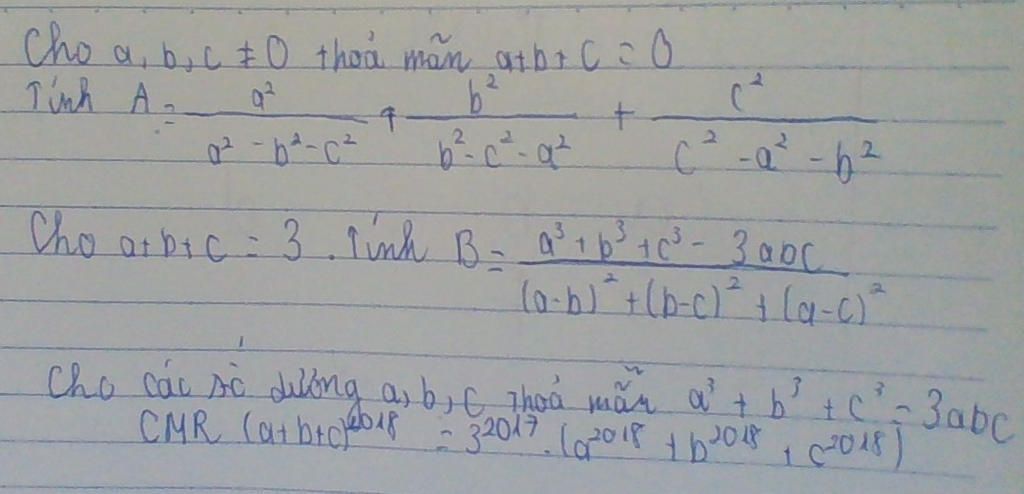 Cho a, b, c ≠ 0 thoả mãn a+b+c = 0
Tính A = a²/(a² - b² - c²) + b²/(b² - c² - a²) + c²/(c² - a² - b²)
Cho a+b+c = 3. Tính B = (a³ + b³ + c³ - 3abc)/((a-b)² + (b-c)² + (a-c)²)
Cho các số dương a, b, c thoả mãn a³ + b³ + c³ = 3abc
CMR (a+b+c)²⁰¹⁸ = 3²⁰¹⁷.(a²⁰¹⁸ + b²⁰¹⁸ + c²⁰¹⁸)